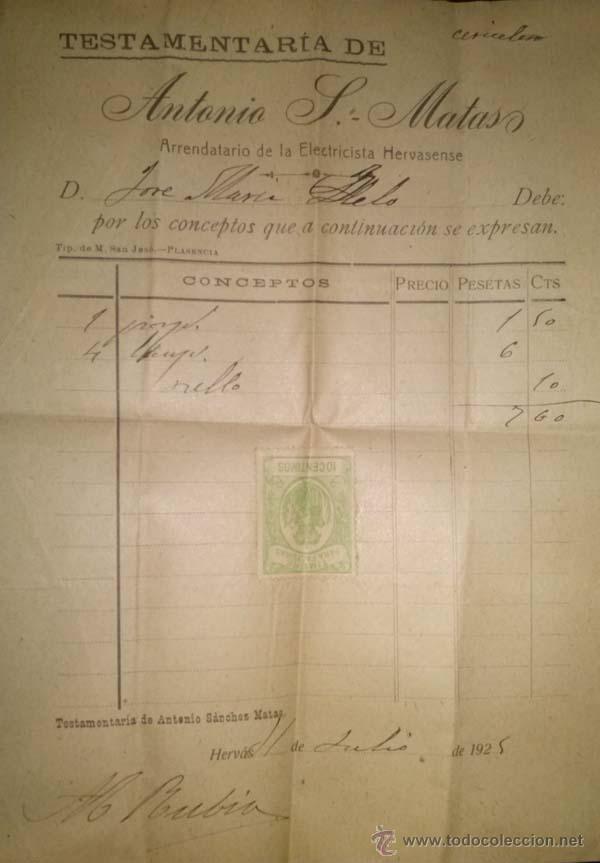 TESTAMENTARÍA DE
Antonio S.- Matas
Arrendatario de la Electricista Hervasense
D. Jose Maria Debe:
por los conceptos que a continuación se expresan.
Tip. de M. San José.—PLASENCIA
CONCEPTOS PRECIO PESETAS CTS
1 1 50
4 6
sello 10
7 60
10 CENTIMOS
Testamentaría de Antonio Sánchez Matas
Hervás de Julio de 1925
Rubio
todocoleccion
© www.todocoleccion.net